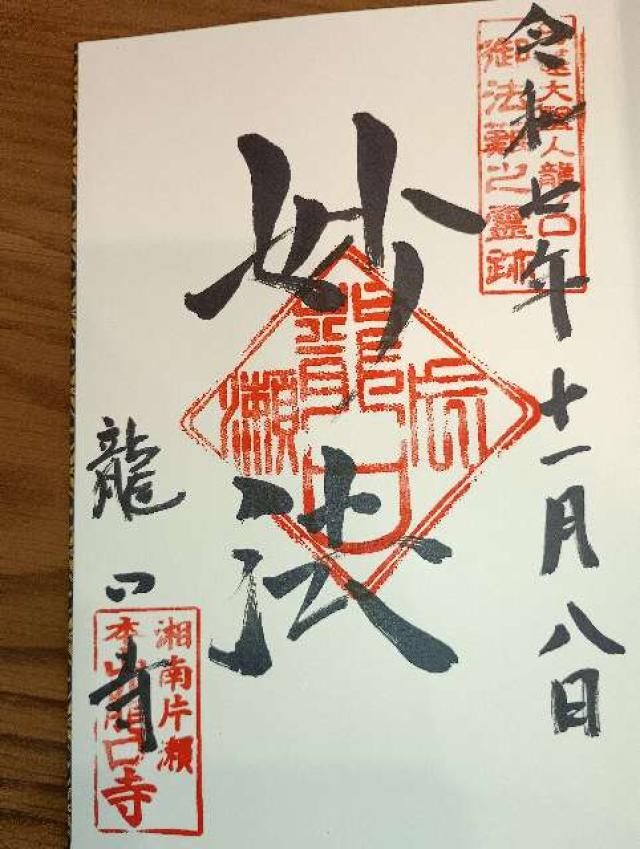 令和七年十一月八日
日蓮大聖人龍ノ口
御法難之霊跡
妙法
片瀬
龍口
龍口寺
湘南片瀬
本山龍口寺